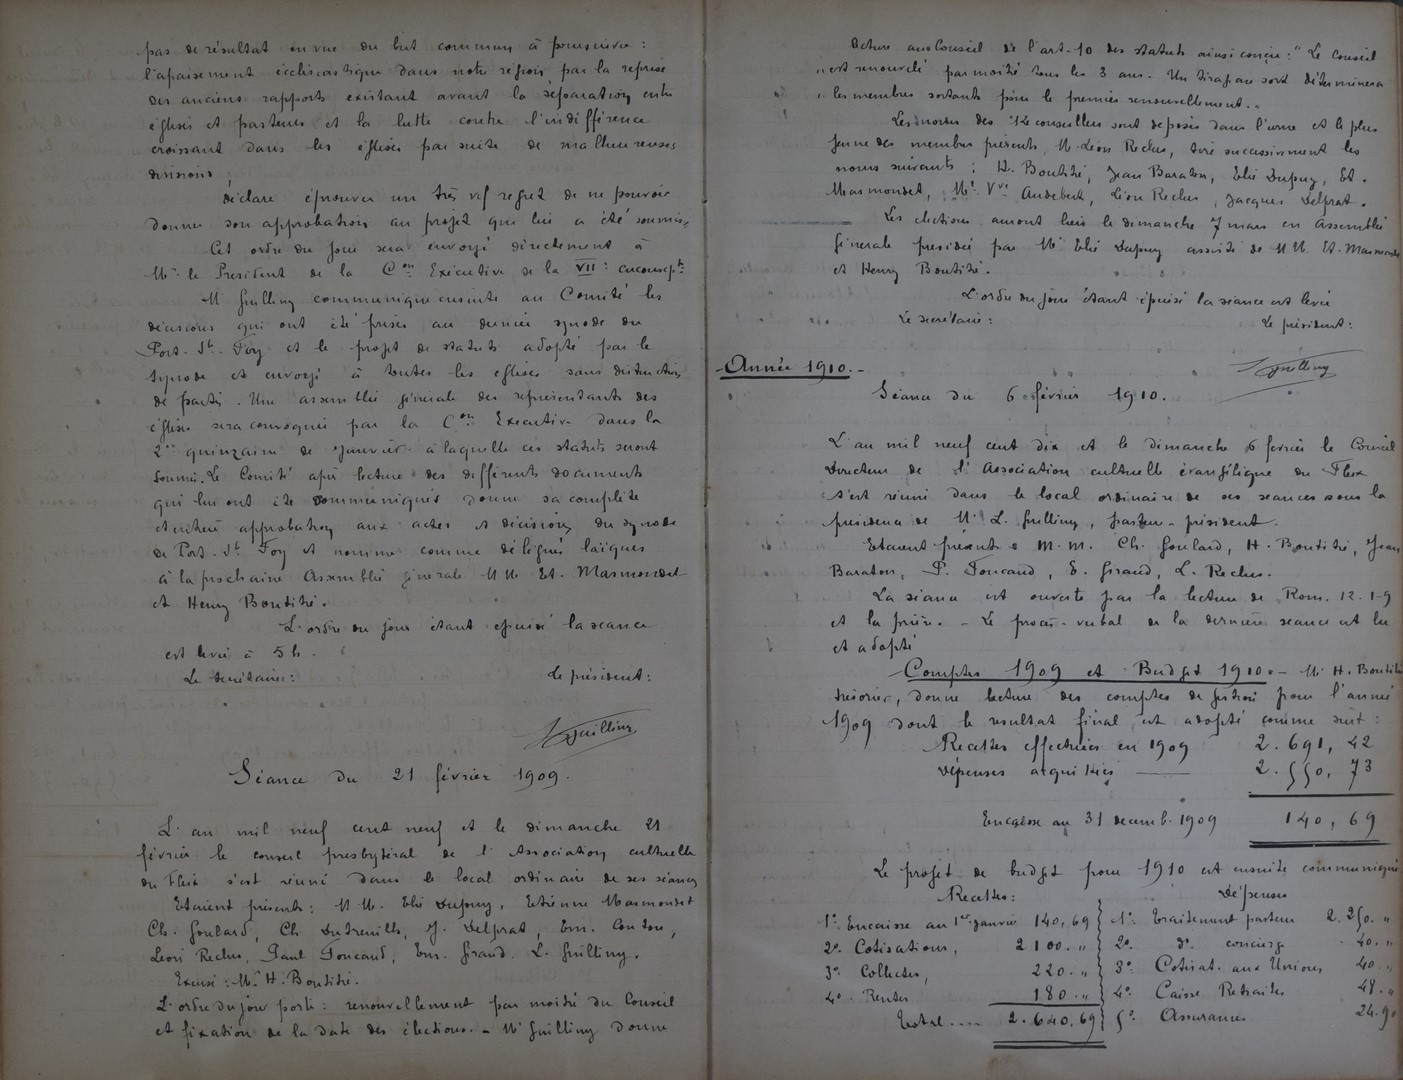 pas de résultat en vue du but commun à poursuivre :
l'apaisement ecclésiastique dans notre région, par la reprise
des anciens rapports existant avant la séparation entre
églises et pasteurs et la lutte contre l'indifférence
croissant dans les églises par suite de malheureuses
divisions ;
déclare éprouver un très vif regret de ne pouvoir
donner son approbation au projet qui lui a été soumis.
Cet ordre du jour sera envoyé directement à
Mr le Président de la Con Exécutive de la VIIe circonscripte
M Guilling communique ensuite au Comité les
décisions qui ont été prises au dernier synode du
Port-Ste-Foy et le projet de statuts adopté par le
Synode et envoyé à toutes les églises sans distinction
de partis. Une assemblée générale des représentants des
églises sera convoquée par la Con Exécutive dans la
2me quinzaine de Janvier à laquelle ces statuts seront
soumis. Le Comité après lecture des différents documents
qui lui ont été communiqués donne sa complète
et entière approbation aux actes et décisions du synode
de Port-Ste Foy et nomme comme délégués laïques
à la prochaine Assemblée générale MM. Et. Marmondet
et Henry Boutitié.
L'ordre du jour étant épuisé la séance
est levée à 5h.
Le secrétaire : Le président :
LGuilling
Séance du 21 février 1909.
L'an mil neuf cent neuf et le dimanche 21
février le conseil presbytéral de l'Association cultuelle
du Fleix s'est réuni dans le local ordinaire de ses séances
Etaient présents : MM. Elie Dupuy, Etienne Marmondet
Ch. Goulard, Ch. Dutreuilh, J. Delprat, Em.
Léon Reclus, Paul Foucaud, Em. Giraud. L. Guilling.
Excusé : Mr H. Boutitié.
L'ordre du jour porte : renouvellement par moitié du Conseil
et fixation de la date des élections. - Mr Guilling donne
lecture au Conseil de l'art. 10 des statuts ainsi conçu : " Le Conseil
" est renouvelé par moitié tous les 3 ans. Un tirage au sort déterminera
" les membres sortants pour le premier renouvellement. "
Les noms des 12 conseillers sont déposés dans l'urne et le plus
jeune des membres présents, M. Léon Reclus, tire successivement les
noms suivants : H. Boutitié, Jean Baraton, Elie Dupuy, Et.
Marmondet, Me Vve Audebert, Léon Reclus, Jacques Delprat.
Les élections auront lieu le dimanche 7 mars en Assemblée
Générale présidée par Mr Elie Dupuy assisté de MM. Et. Marmondet
et Henry Boutitié.
L'ordre du jour étant épuisé la séance est levée
Le secrétaire : Le président :
LGuilling
- Année 1910. -
Séance du 6 février 1910.
L'an mil neuf cent dix et le dimanche 6 février le Conseil
Directeur de l'Association cultuelle évangélique du Fleix
s'est réuni dans le local ordinaire de ses séances sous la
présidence de M. L. Guilling, pasteur-président.
Etaient présents : M.M. Ch. Goulard, H. Boutitié, Jean
Baraton, P. Foucaud, E. Giraud, L. Reclus.
La séance est ouverte par la lecture de Rom. 12. 1-9
et la prière. - Le procès-verbal de la dernière séance est lu
et adopté
Comptes 1909 et Budget 1910. - Mr H. Boutitié
trésorier, donne lecture des comptes de gestion pour l'année
1909 dont le résultat final est adopté comme suit :
Recettes effectuées en 1909 2.691,42
Dépenses acquittées 2.550,73
Encaisse au 31 décemb. 1909 140,69
Le projet de budget pour 1910 est ensuite communiqué
Recettes : Dépenses
1º. Encaisse au 1er janvier 140,69 1º. Traitement pasteur 2.250. "
2º. Cotisations, 2100. " 2º. dº. concierge 40. "
3º. Collectes, 220. " 3º. Cotisat. aux Unions 40. "
4º. Rentes 180. " 4º. Caisse Retraites 48. "
Total .... 2.640,69 5º. Assurances 24.90